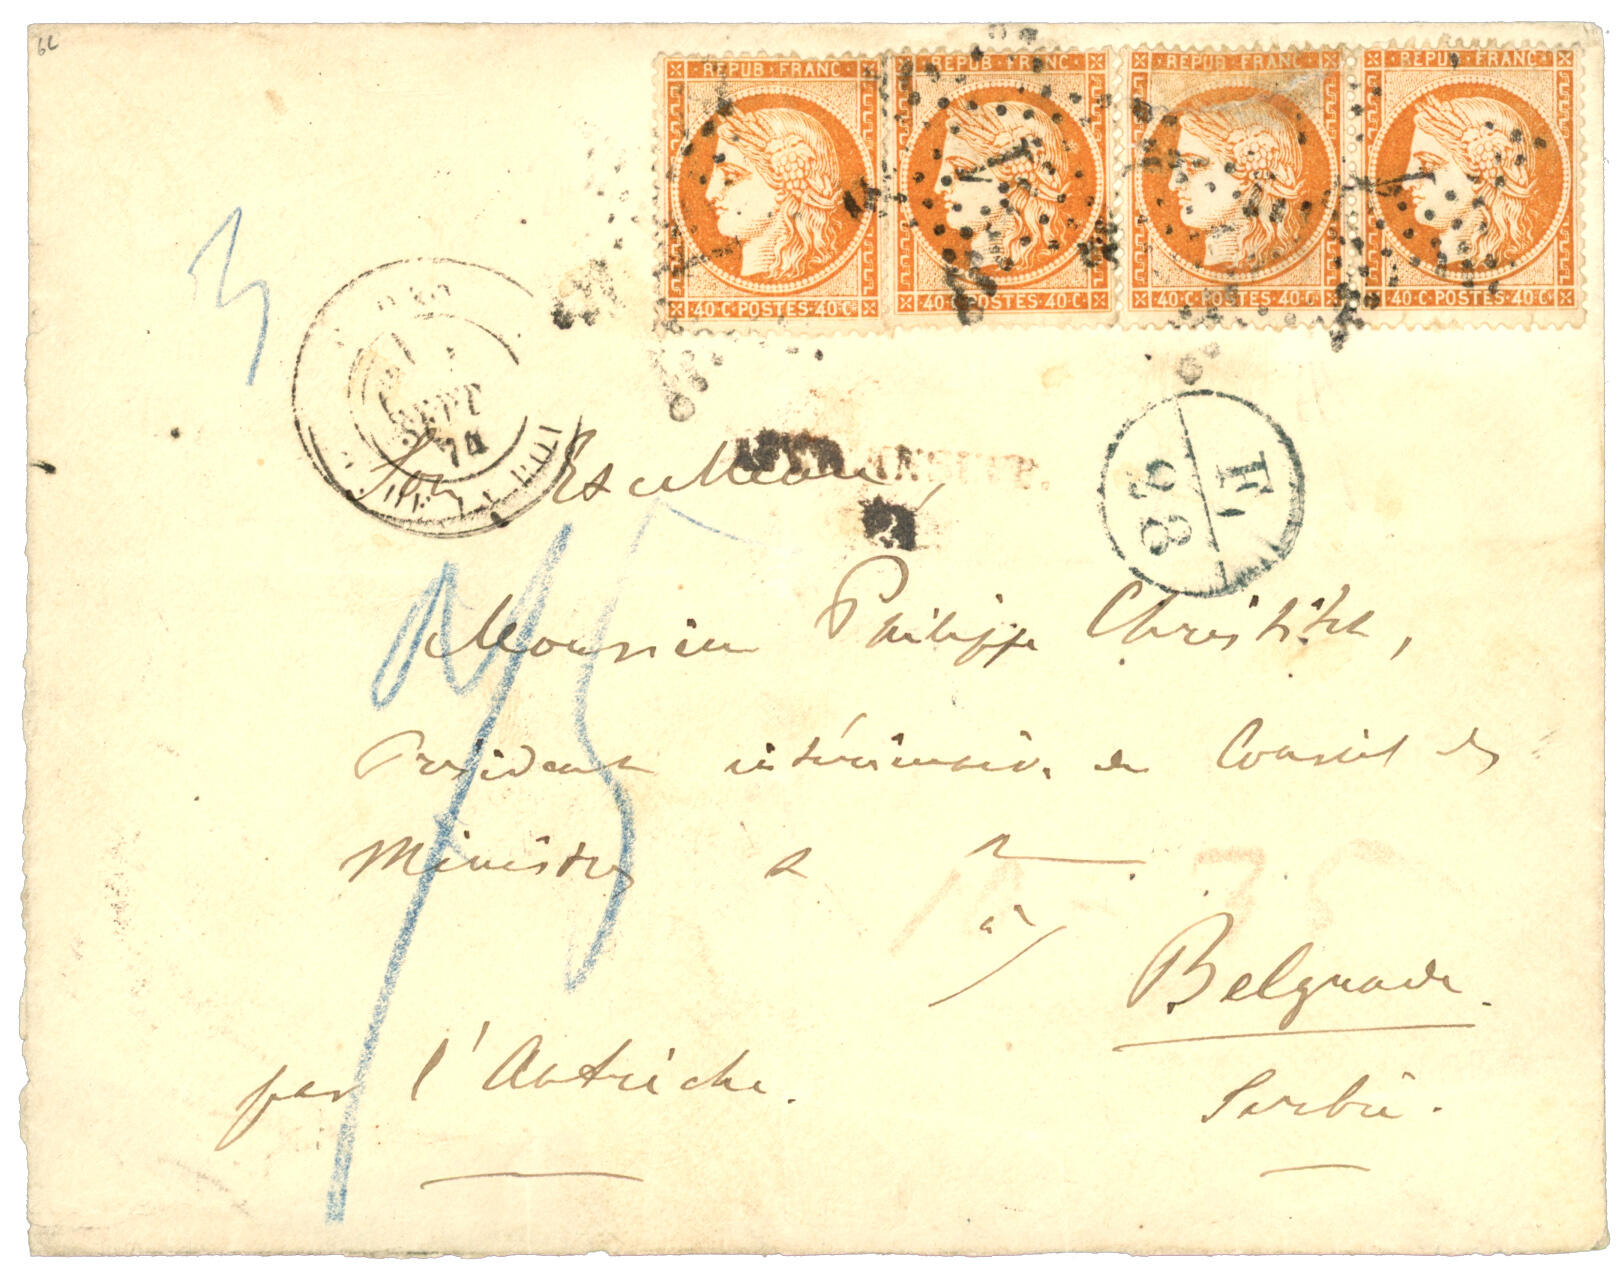 6L
REPUB·FRANC· REPUB·FRANC· REPUB·FRANC· REPUB·FRANC·
40·C·POSTES·40·C· 40·C·POSTES·40·C· 40·C·POSTES·40·C· 40·C·POSTES·40·C·
1 1
3
SEPT
74
F.
98
Son Excellence,
Monsieur Philippe Christitch,
Président intérimaire du Conseil des
Ministres &
à
Belgrade.
par l'Autriche.
Serbie.